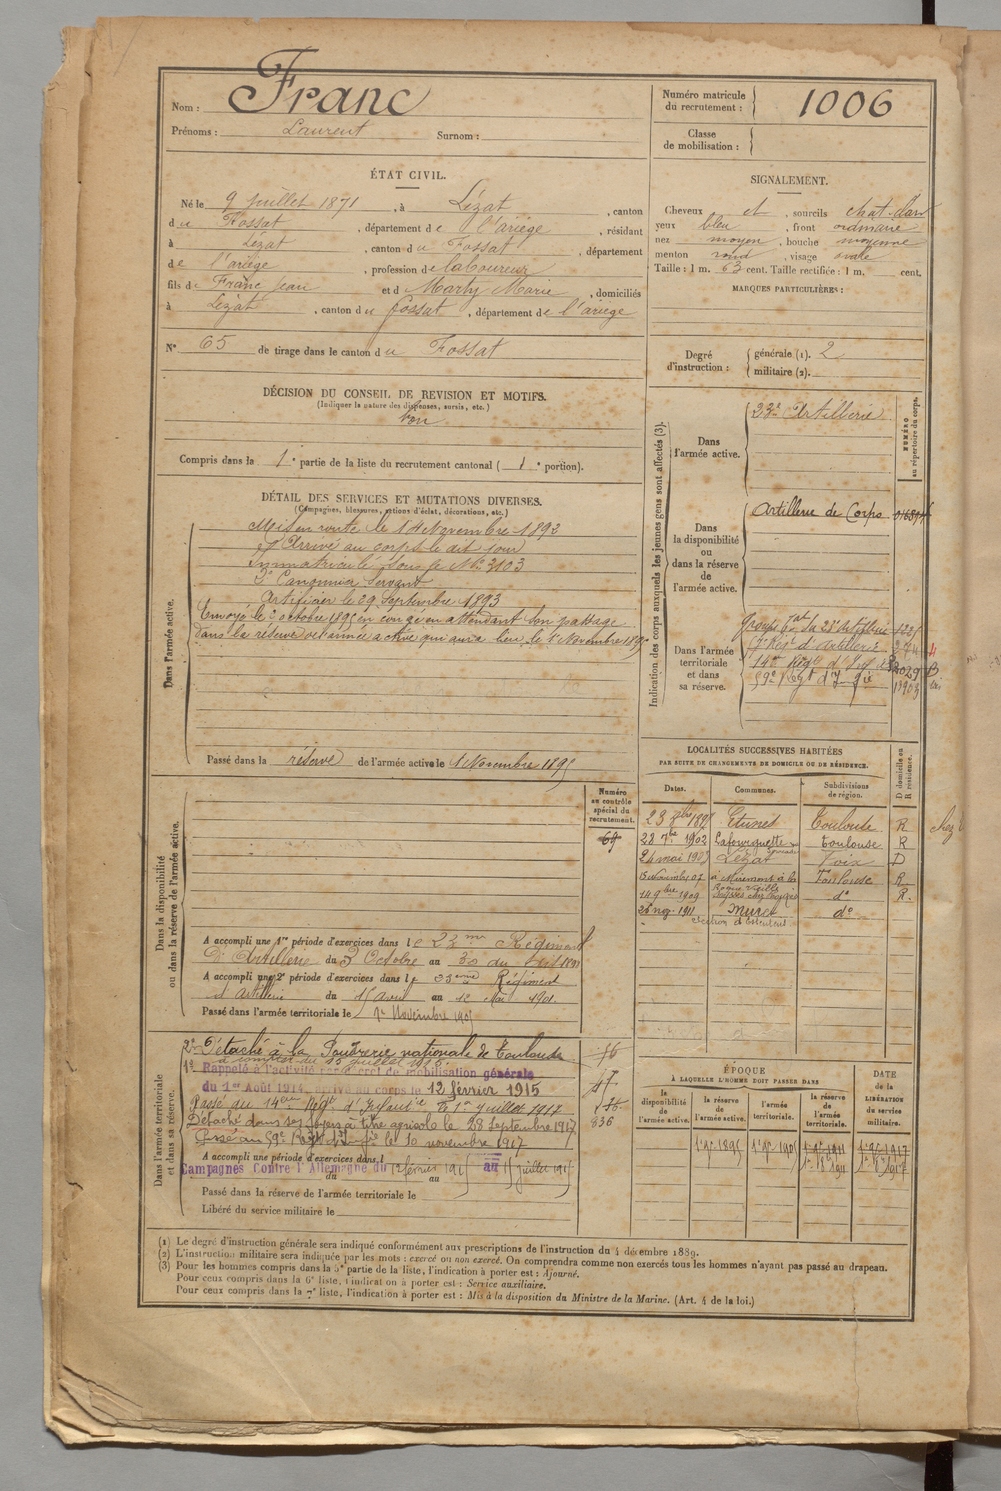 Nom : Franc
Prénoms : Laurent Surnom :
Numéro matricule du recrutement : 1006
Classe de mobilisation :
ÉTAT CIVIL.
Né le 9 juillet 1871, à Lézat, canton
du Fossat, département de l'ariège, résidant
à Lezat, canton du Fossat, département
de l'ariège, profession de laboureur
fils de Franc Jean et de Marty Marie, domiciliés
à Lézat, canton du Fossat, département de l'ariège
N° 65 de tirage dans le canton du Fossat
SIGNALEMENT.
Cheveux et, sourcils chat. clair
yeux bleu, front ordinaire
nez moyen, bouche moyenne
menton rond, visage ovale
Taille : 1 m. 63 cent. Taille rectifiée : 1 m, cent.
MARQUES PARTICULIÈRES :
Degré d'instruction : générale (1). 2
militaire (2).
DÉCISION DU CONSEIL DE REVISION ET MOTIFS.
(Indiquer la nature des dispenses, sursis, etc.)
bon
Compris dans la 1e partie de la liste du recrutement cantonal (1e portion).
DÉTAIL DES SERVICES ET MUTATIONS DIVERSES.
(Campagnes, blessures, actions d'éclat, décorations, etc.)
Dans l'armée active.
Mis en route le 14 Novembre 1892
Arrivé au corps le dit jour
Immatriculé sous le N° 3103
2e Canonnier Servant
Artificier le 29 Septembre 1893
Envoyé le 2 octobre 1895 en congé en attendant son passage
dans la réserve de l'armée active qui aura lieu le 1er Novembre 1895
Passé dans la réserve de l'armée active le 1 Novembre 1895
Indication des corps auxquels les jeunes gens sont affectés (3).
NUMÉRO au répertoire du corps.
Dans l'armée active.
23e Artillerie
Dans la disponibilité ou dans la réserve de l'armée active.
Artillerie de Corps
Dans l'armée territoriale et dans sa réserve.
du 23e Artillerie
17e Régt d'Artillerie
14e Régt d'Inf
59e Régt d'Inf
LOCALITÉS SUCCESSIVES HABITÉES
PAR SUITE DE CHANGEMENTS DE DOMICILE OU DE RÉSIDENCE.
Dates. Communes. Subdivisions de région. D domicile ou R résidence.
Toulouse R
28 7bre 1902 Lafourguette Toulouse R
24 mai 1905 Lézat Foix D
Novembre 07 à Miremont Toulouse R
14 9bre 1909 d° R.
Muret d°
Dans la disponibilité ou dans la réserve de l'armée active.
Numéro au contrôle spécial du recrutement.
69
A accompli une 1re période d'exercices dans le 23me Régiment
D'Artillerie du 3 Octobre au 30 du dit 1898
A accompli une 2e période d'exercices dans le 23eme Régiment
d'Artillerie du 15 avril au 12 Mai 1901
Passé dans l'armée territoriale le 1er Novembre 1905
Dans l'armée territoriale et dans sa réserve.
2° Détaché à la Poudrerie nationale de Toulouse
à compter du 15 juillet 1915.
1° Rappelé à l'activité décret de mobilisation générale
du 1er Août 1914. arrivé au corps le 12 février 1915
Passé au 14eme Régt d'Infantie le 1er juillet 1917
Détaché dans ses foyers à titre agricole le 28 Septembre 1917
Passé au 59e Régt d'Infie le 10 novembre 1917
A accompli une période d'exercices dans l
du au
Campagnes Contre l'Allemagne du 12 février 1915 au 15 juillet 1915
Passé dans la réserve de l'armée territoriale le
Libéré du service militaire le
ÉPOQUE
À LAQUELLE L'HOMME DOIT PASSER DANS
la disponibilité de l'armée active. la réserve de l'armée active. l'armée territoriale. la réserve de l'armée territoriale.
DATE de la LIBÉRATION du service militaire.
1er 9bre 1895 1er 9bre 1905
(1) Le degré d'instruction générale sera indiqué conformément aux prescriptions de l'instruction du 4 décembre 1889.
(2) L'instruction militaire sera indiquée par les mots : exercé ou non exercé. On comprendra comme non exercés tous les hommes n'ayant pas passé au drapeau.
(3) Pour les hommes compris dans la 5e partie de la liste, l'indication à porter est : Ajourné.
Pour ceux compris dans la 6e liste, l'indication à porter est : Service auxiliaire.
Pour ceux compris dans la 7e liste, l'indication à porter est : Mis à la disposition du Ministre de la Marine. (Art. 4 de la loi.)